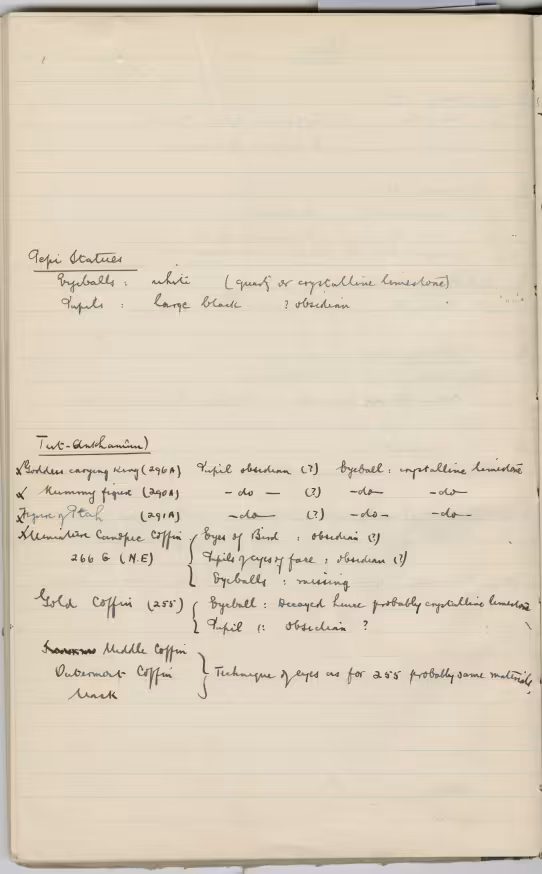 Pepi Statues
Eyeballs : white (quartz or crystalline limestone)
Pupils : large black ? obsidian
Tut-Ankhamun)
x Goddess carrying King (296A) Pupil obsidian (?) Eyeball : crystalline limestone
x Mummy figure (290A) - do - (?) - do - - do -
x Figure of Ptah (291A) - do - (?) - do - - do -
x Miniature Canopic Coffin { Eyes of Bird : obsidian (?)
266 G (N.E) Pupils of eyes of face : obsidian (?)
Eyeballs : missing
Gold Coffin (255) { Eyeball : Decayed hence probably crystalline limestone
Pupil : obsidian ?
Middle Coffin
Outermost Coffin } Technique of eyes as for 255 probably same materials
Mask